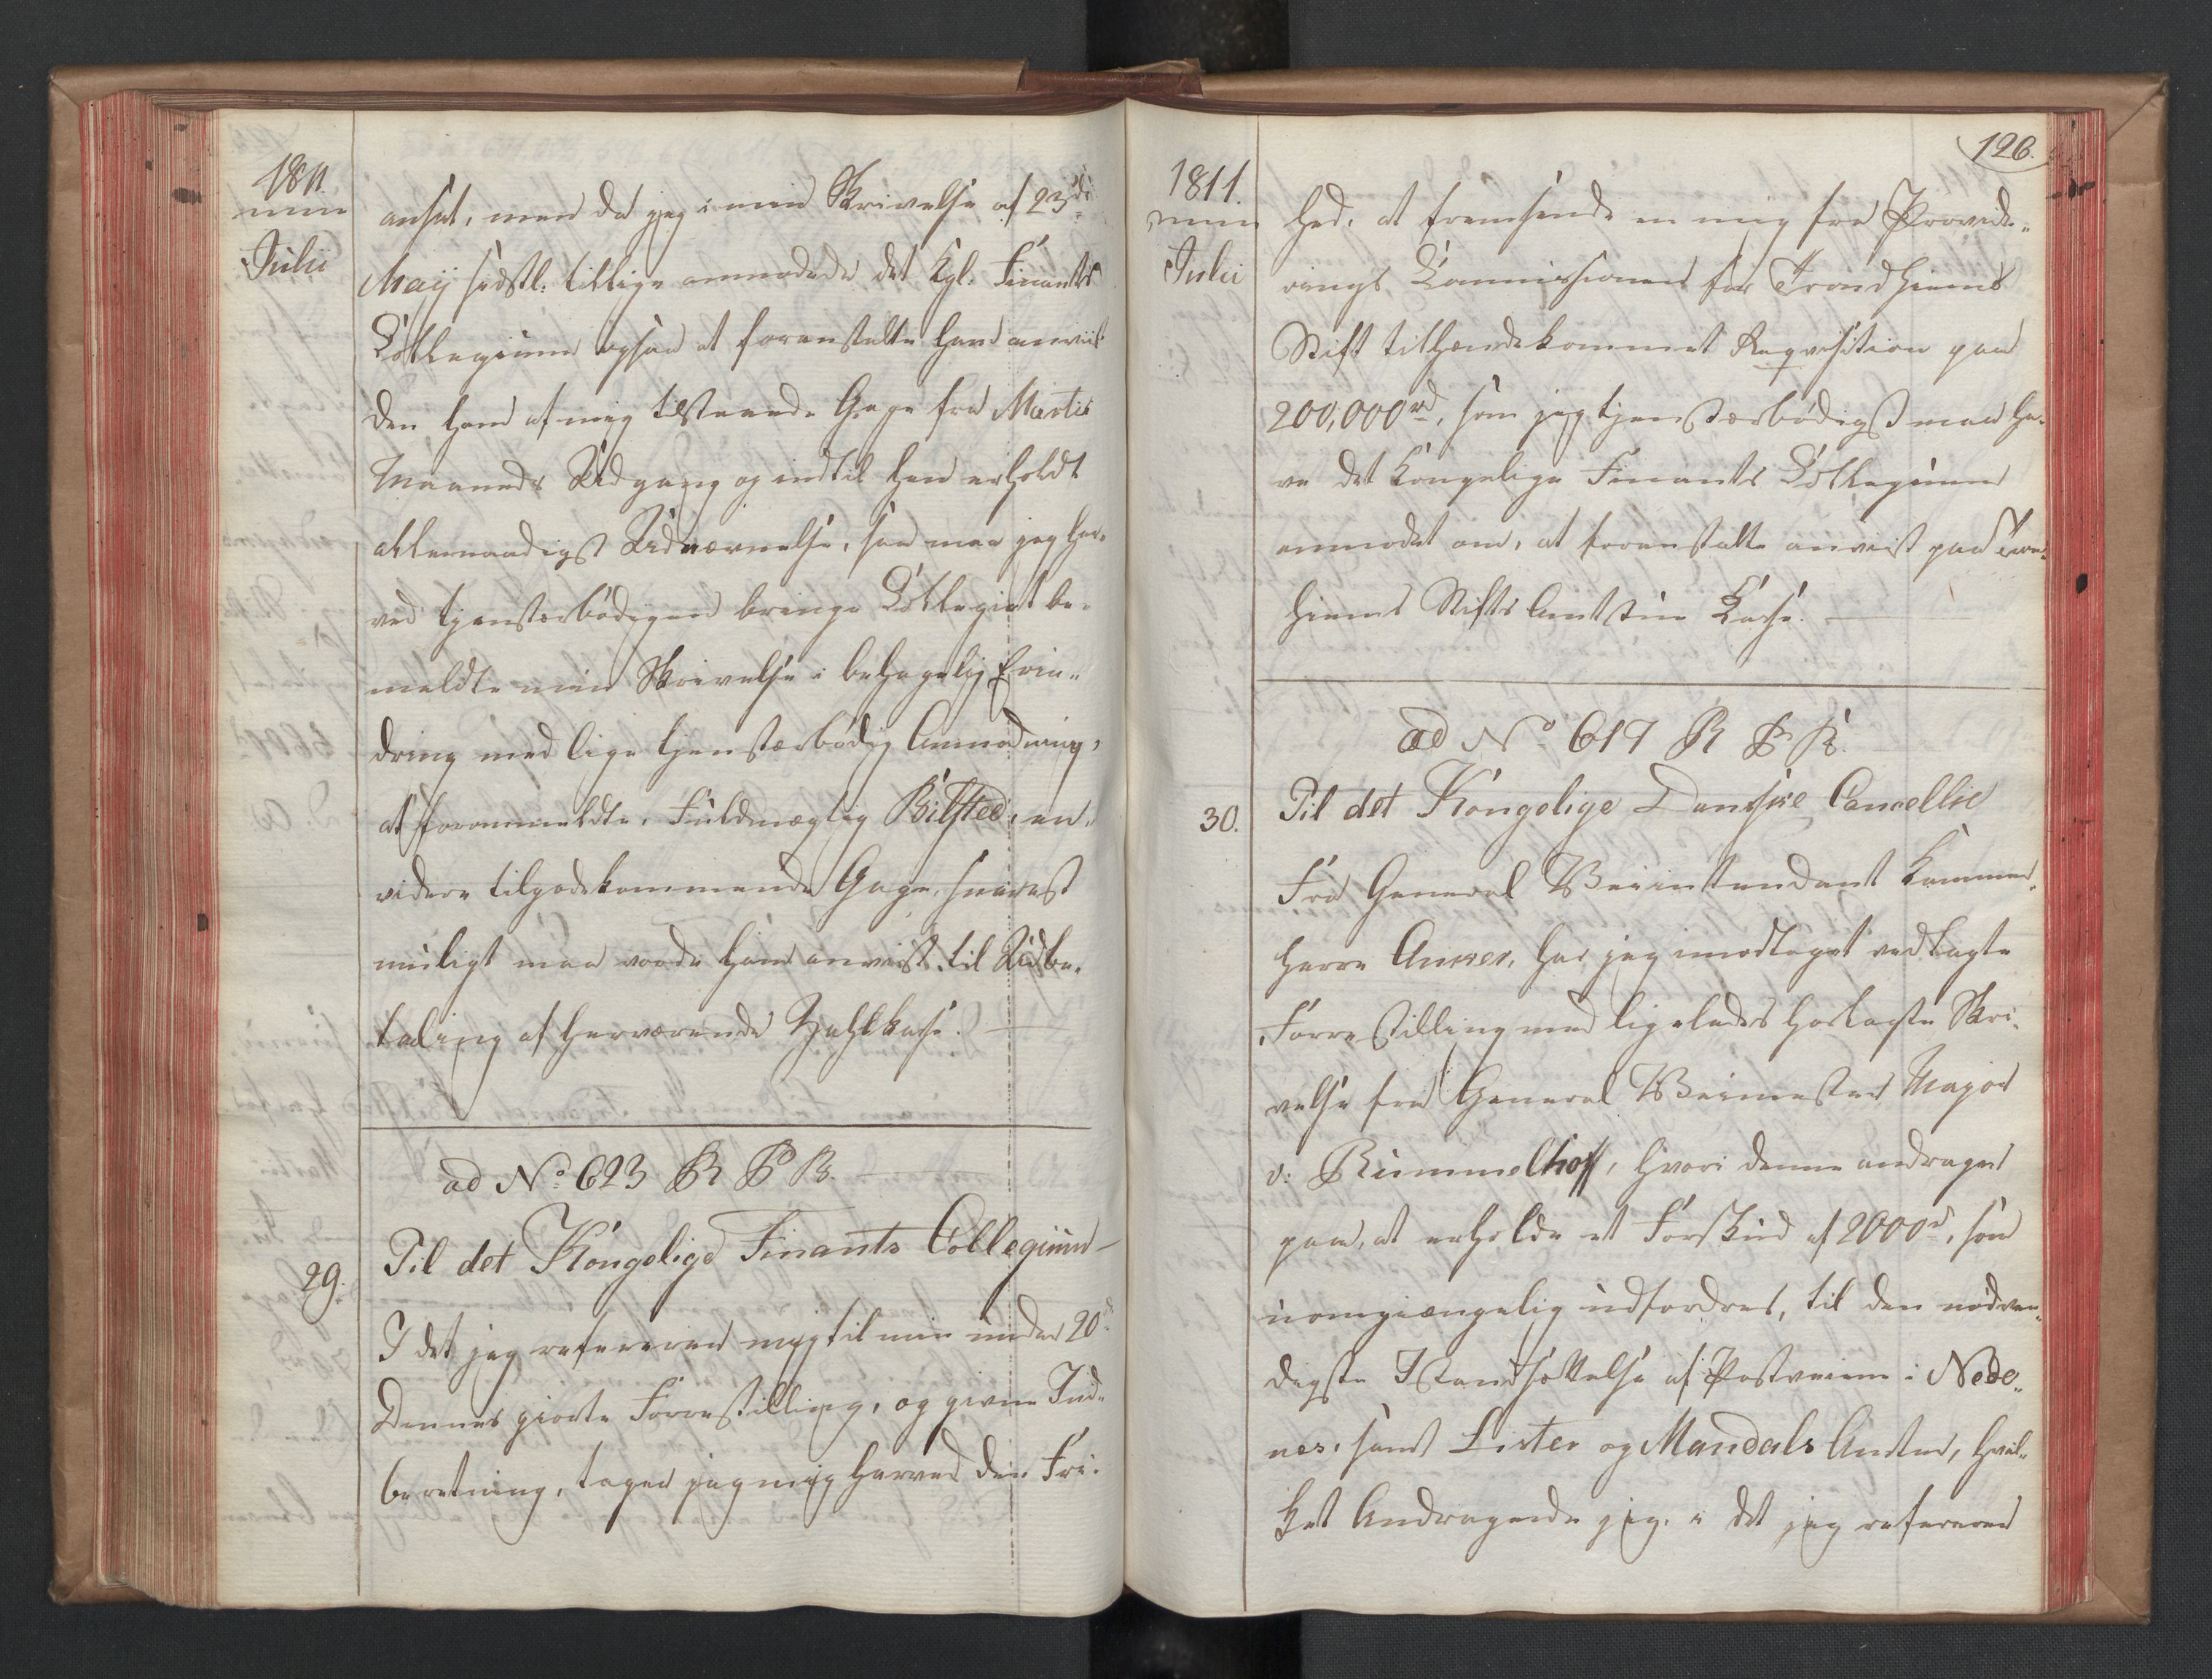 1811.
Julii
ansat, men da jeg i min Skrivelse af 23de
Maij sidstl: tillige anmodede det Kgl: Finants
Collegium ogsaa at foranstalte ham anviist
den ham af mig tilstaaende Gage fra Martii
Maaneds Udgang og indtil han erholdt
allernaadigst Udnævnelse, saa maa jeg her-
ved tjenstærbødigen bringe Collegiet be-
meldte min Skrivelse i behagelig Erin-
dring med lige tjenstærbødig Anmodning,
at forommeldte, Fuldmægtig Bilsted, en-
videre tilgodekommende Gage, snarest
muligt maa vorde ham anviist til Udbe-
taling af herværende Zahlkasse.
ad No 623 R P B.
29.
Til det Kongelige Finants Collegium
I det jeg refererer mig til min under 20de
Dennes giorte Forrestilling, og givne Ind-
beretning, tager jeg mig herved den Fri-
126.
1811.
Julii
hed, at fremsende en mig fra Provide-
rings Commissionen for Trondhiems
Stift tilhændekommet Reqvisition paa
200,000 rd, som jeg tjenstærbødigst maa ha-
ve det Kongelige Finants Collegium
anmodet om, at foranstalte anvist paa Tron-
hiems Stifts Amtstue Casse.
ad No 617 R P K.
30.
Til det Kongelige Danske Cancellie
Fra General Veiintendant Kammer-
herre Anker, har jeg imodtaget vedlagte
Forrestilling med ligeledes hoslagte Skri-
velse fra General Veimester Major
v: Rummelhoff, hvori denne andrager
paa, at erholde et Forskud af 2000 rd, som
uomgiængelig udfordres, til den nødven-
digste Istandsættelse af Postveiene i Nede-
nes, samt Lister og Mandals Amter, hvil-
ket Andragende jeg, i det jeg refererer